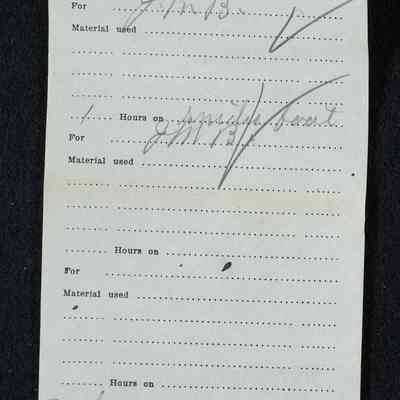 For J.M.B.
Material used
1 Hours on boat
For J M B.
Material used
Hours on
For
Material used
Hours on